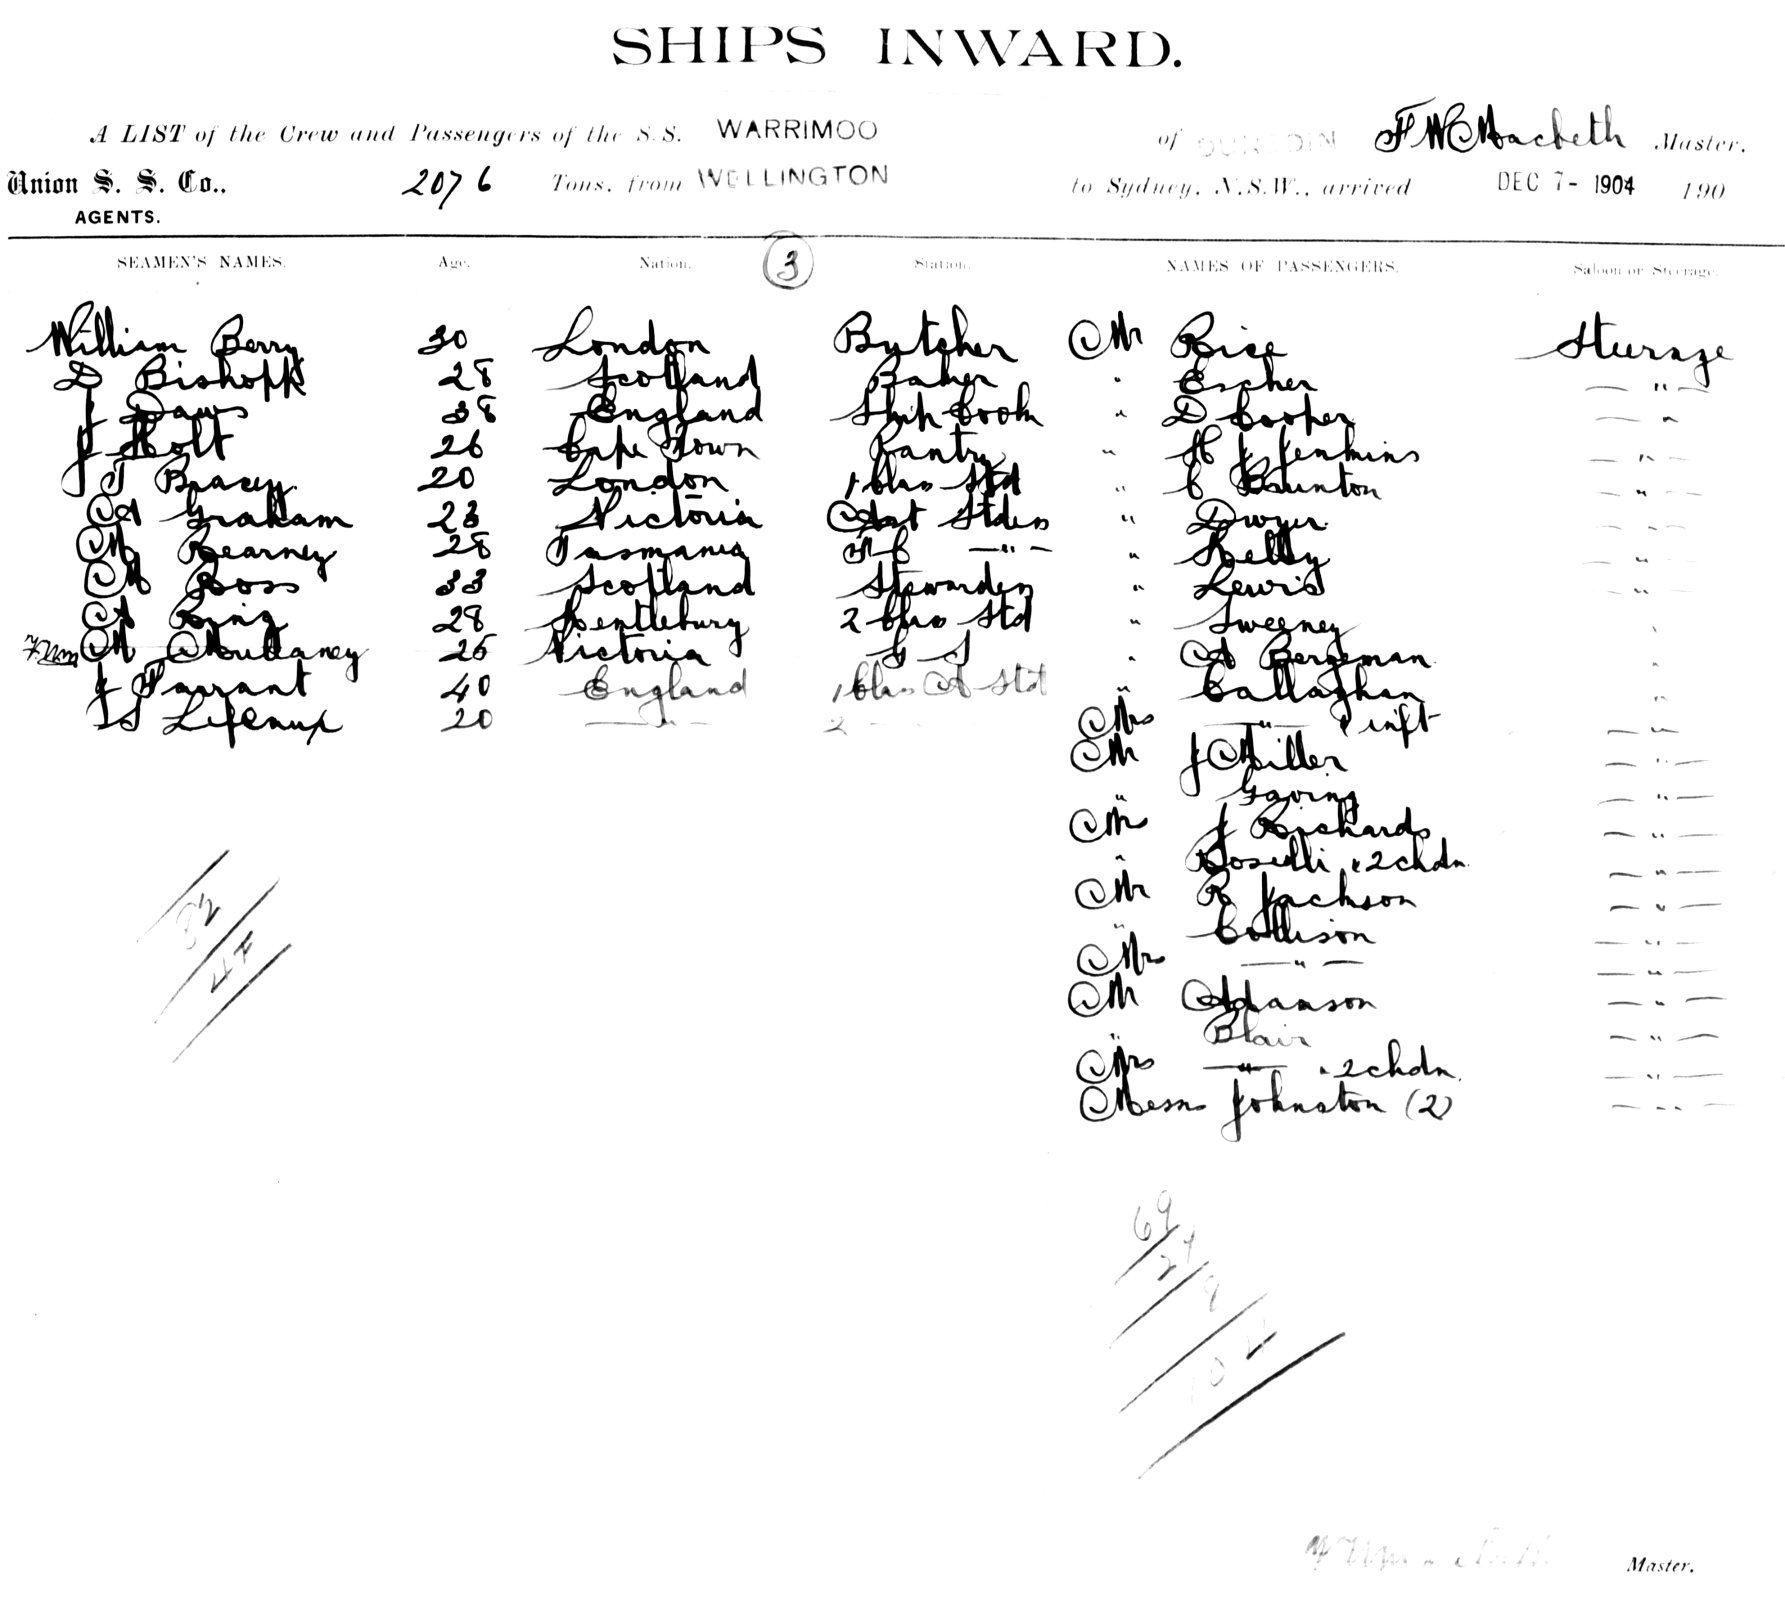 SHIPS INWARD.
A LIST of the Crew and Passengers of the S.S. WARRIMOO of DUNEDIN F W Macbeth Master.
Union S. S. Co., 2076 Tons, from WELLINGTON to Sydney, N.S.W., arrived DEC 7- 1904 190
AGENTS.
SEAMEN'S NAMES. Age. Nation. 3 Station. NAMES OF PASSENGERS. Saloon or Steerage.
William Berry 30 London Butcher Mr Rice Steerage
D Bishopp 28 Scotland Baker " Escher "
J Daws 38 England Ship Cook " D Cooper "
J Holt 26 Cape Town Pantry " H J Jenkins "
J T Bracey 20 London 1 Class Std " C Brunton "
A Graham 23 Victoria Asst Stdess " Dwyer "
M Kearney 28 Tasmania F C " " Kelly "
M Ross 33 Scotland Stewardess " Lewis "
A King 28 2 Class Std " Sweeney "
M Mullaney 25 Victoria G S " A Bergeman "
J Tarrant 40 England 1 Class A Std " Callaghan "
S 20 " 2 Mrs " & inft "
Mr J Miller "
" Goring "
Mrs J Richards "
" Boselli & 2 chdn "
Mr R Jackson "
" Collison "
Mrs " "
Mr Adamson "
" Blair "
Mrs " & 2 chdn "
Messrs Johnston (2) "
32
44
69
27
8
104
Master.